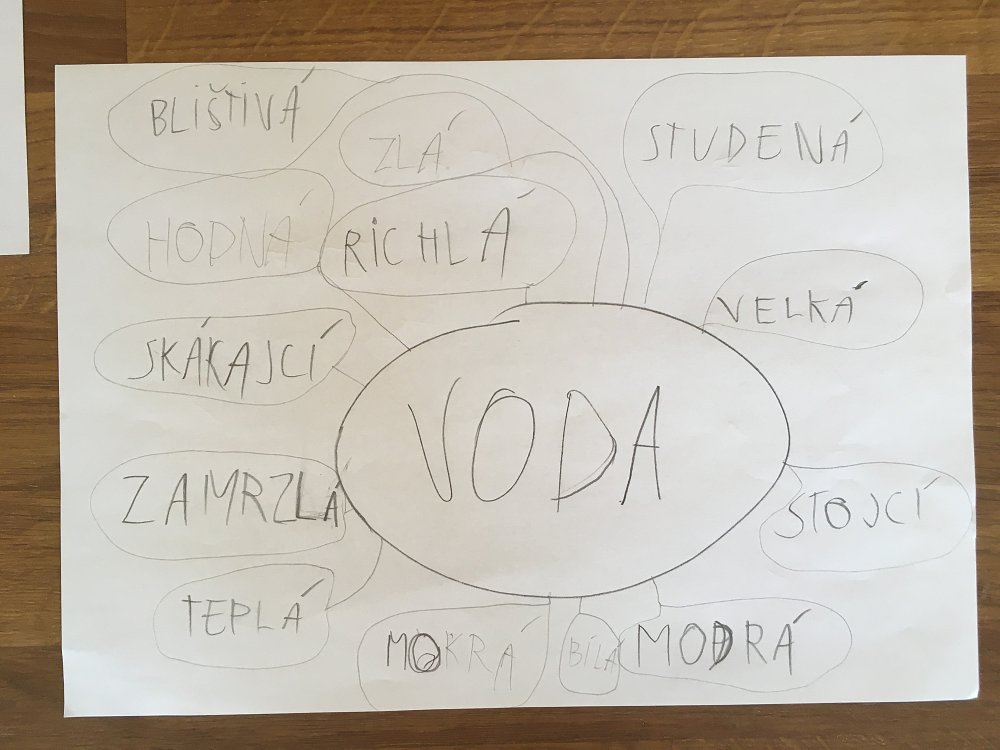 BLIŠTIVÁ
ZLÁ
STUDENÁ
HODNÁ
RICHLÁ
VELKÁ
SKÁKAJCÍ
VODA
ZAMRZLÁ
STOJCÍ
TEPLÁ
MOKRÁ
BÍLÁ
MODRÁ